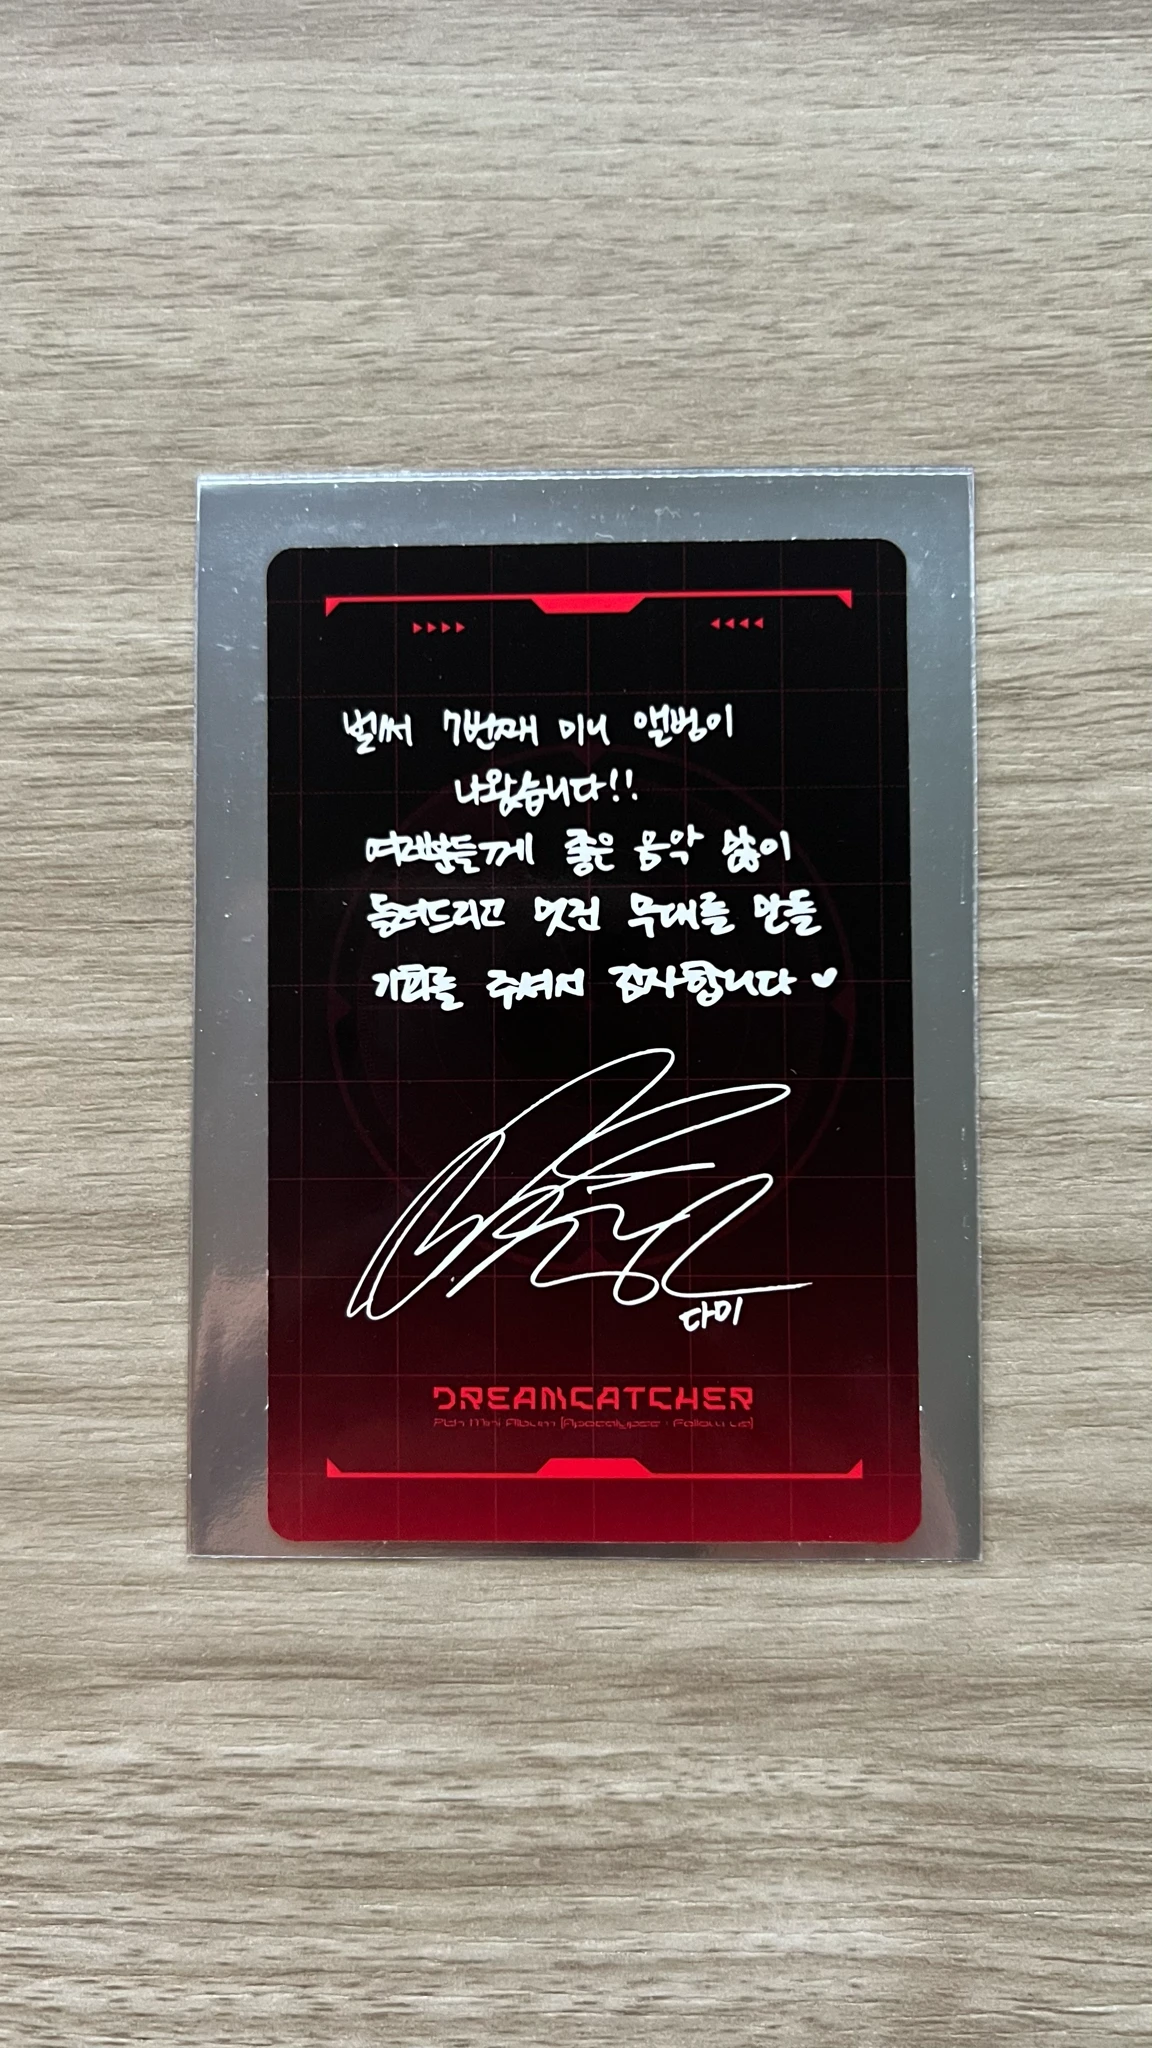 벌써 7번째 미니 앨범이
나왔습니다!!
여러분들께 좋은 음악 많이
들려드리고 멋진 무대를 만들
기회를 주셔서 감사합니다 ♥
다미
DREAMCATCHER
7th Mini Album [Apocalypse : Follow us]